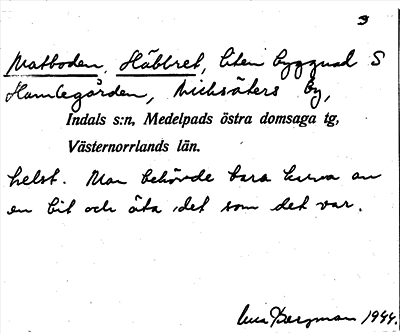 3
Matboden, Häbbret, liten byggnad S
Hamlegården, Nichsäters by,
Indals s:n, Medelpads östra domsaga tg,
Västernorrlands län.
helst. Man behövde bara karva av
en bit och äta det som det var.
Bergman 1944.